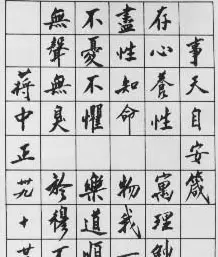 事天自安箴
存心養性寓理
盡性知命物我一
不憂不懼樂道順
無聲無臭於穆不
蔣中正卅九十